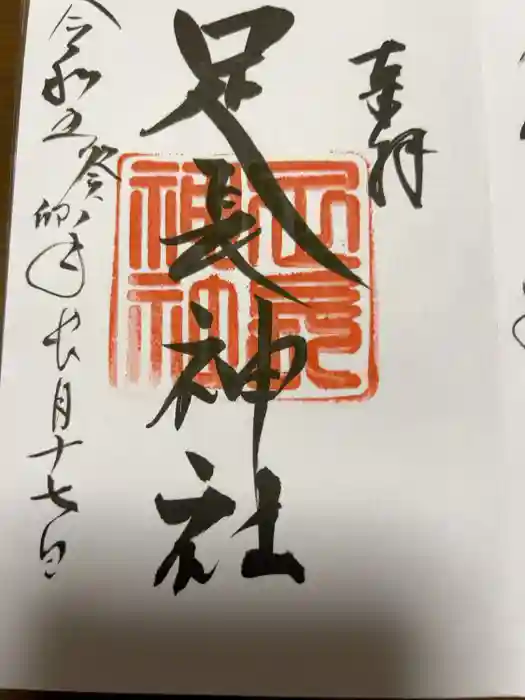 奉拝
足長神社
令和五癸卯年七月十七日